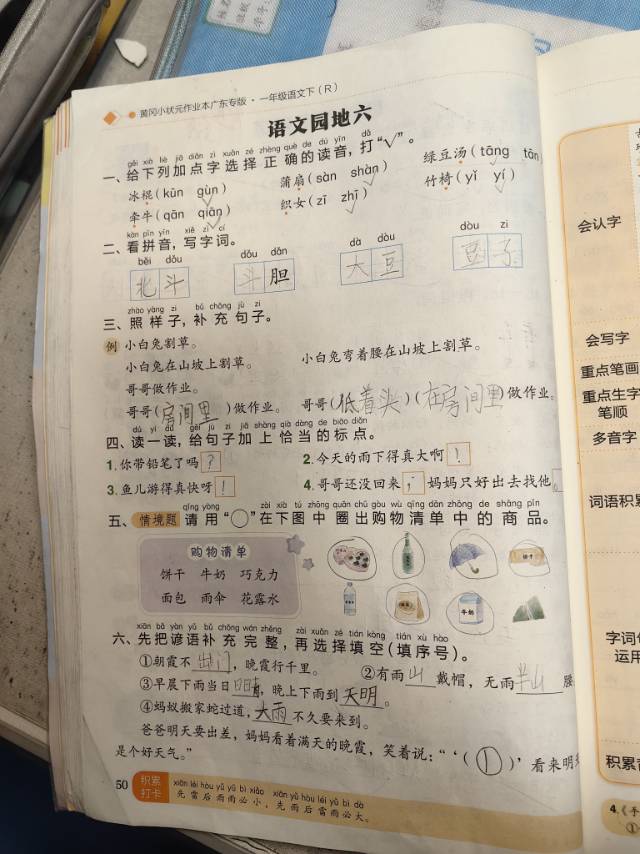 黄冈小状元作业本广东专版·一年级语文下(R)
语文园地六
gěi xià liè jiā diǎn zì xuǎn zé zhèng què de dú yīn dǎ
一、给下列加点字选择正确的读音,打“√”。
冰棍(kūn gùn) 蒲扇(sàn shàn) 绿豆汤(tāng
牵牛(qān qiān) 织女(zī zhī) 竹椅(yǐ yí)
kàn pīn yīn xiě zì cí
二、看拼音,写字词。
běi dǒu dǒu dǎn dà dòu dòu zi
北斗 斗胆 大豆 豆子
zhào yàng zi bǔ chōng jù zi
三、照样子,补充句子。
例 小白兔割草。
小白兔在山坡上割草。 小白兔弯着腰在山坡上割草。
哥哥做作业。
哥哥(房间里)做作业。 哥哥(低着头)(在房间里)做作业。
dú yi dú gěi jù zi jiā shàng qià dàng de biāo diǎn
四、读一读,给句子加上恰当的标点。
1.你带铅笔了吗? 2.今天的雨下得真大啊!
3.鱼儿游得真快呀! 4.哥哥还没回来,妈妈只好出去找他
qíng yòng zài xià tú zhōng quān chū gòu wù qīng dān zhōng de shāng pǐn
五、情境题 请用“○”在下图中圈出购物清单中的商品。
购物清单
饼干 牛奶 巧克力
面包 雨伞 花露水
牛奶
xiān bǎ yàn yǔ bǔ chōng wán zhěng zài xuǎn zé tián kòng tián xù hào
六、先把谚语补充完整,再选择填空(填序号)。
①朝霞不出门,晚霞行千里。 ②有雨山戴帽,无雨半山腰
③早晨下雨当日晴,晚上下雨到天明。
④蚂蚁搬家蛇过道,大雨不久要来到。
爸爸明天要出差,妈妈看着满天的晚霞,笑着说:“‘(①)’看来明
是个好天气。”
50 积累打卡 xiān léi hòu yǔ yǔ bì xiǎo xiān yǔ hòu léi yǔ bì dà
先雷后雨雨必小,先雨后雷雨必大。
会认字
会写字
重点笔画
重点生字
笔顺
多音字
词语积累
词语
运用
积累